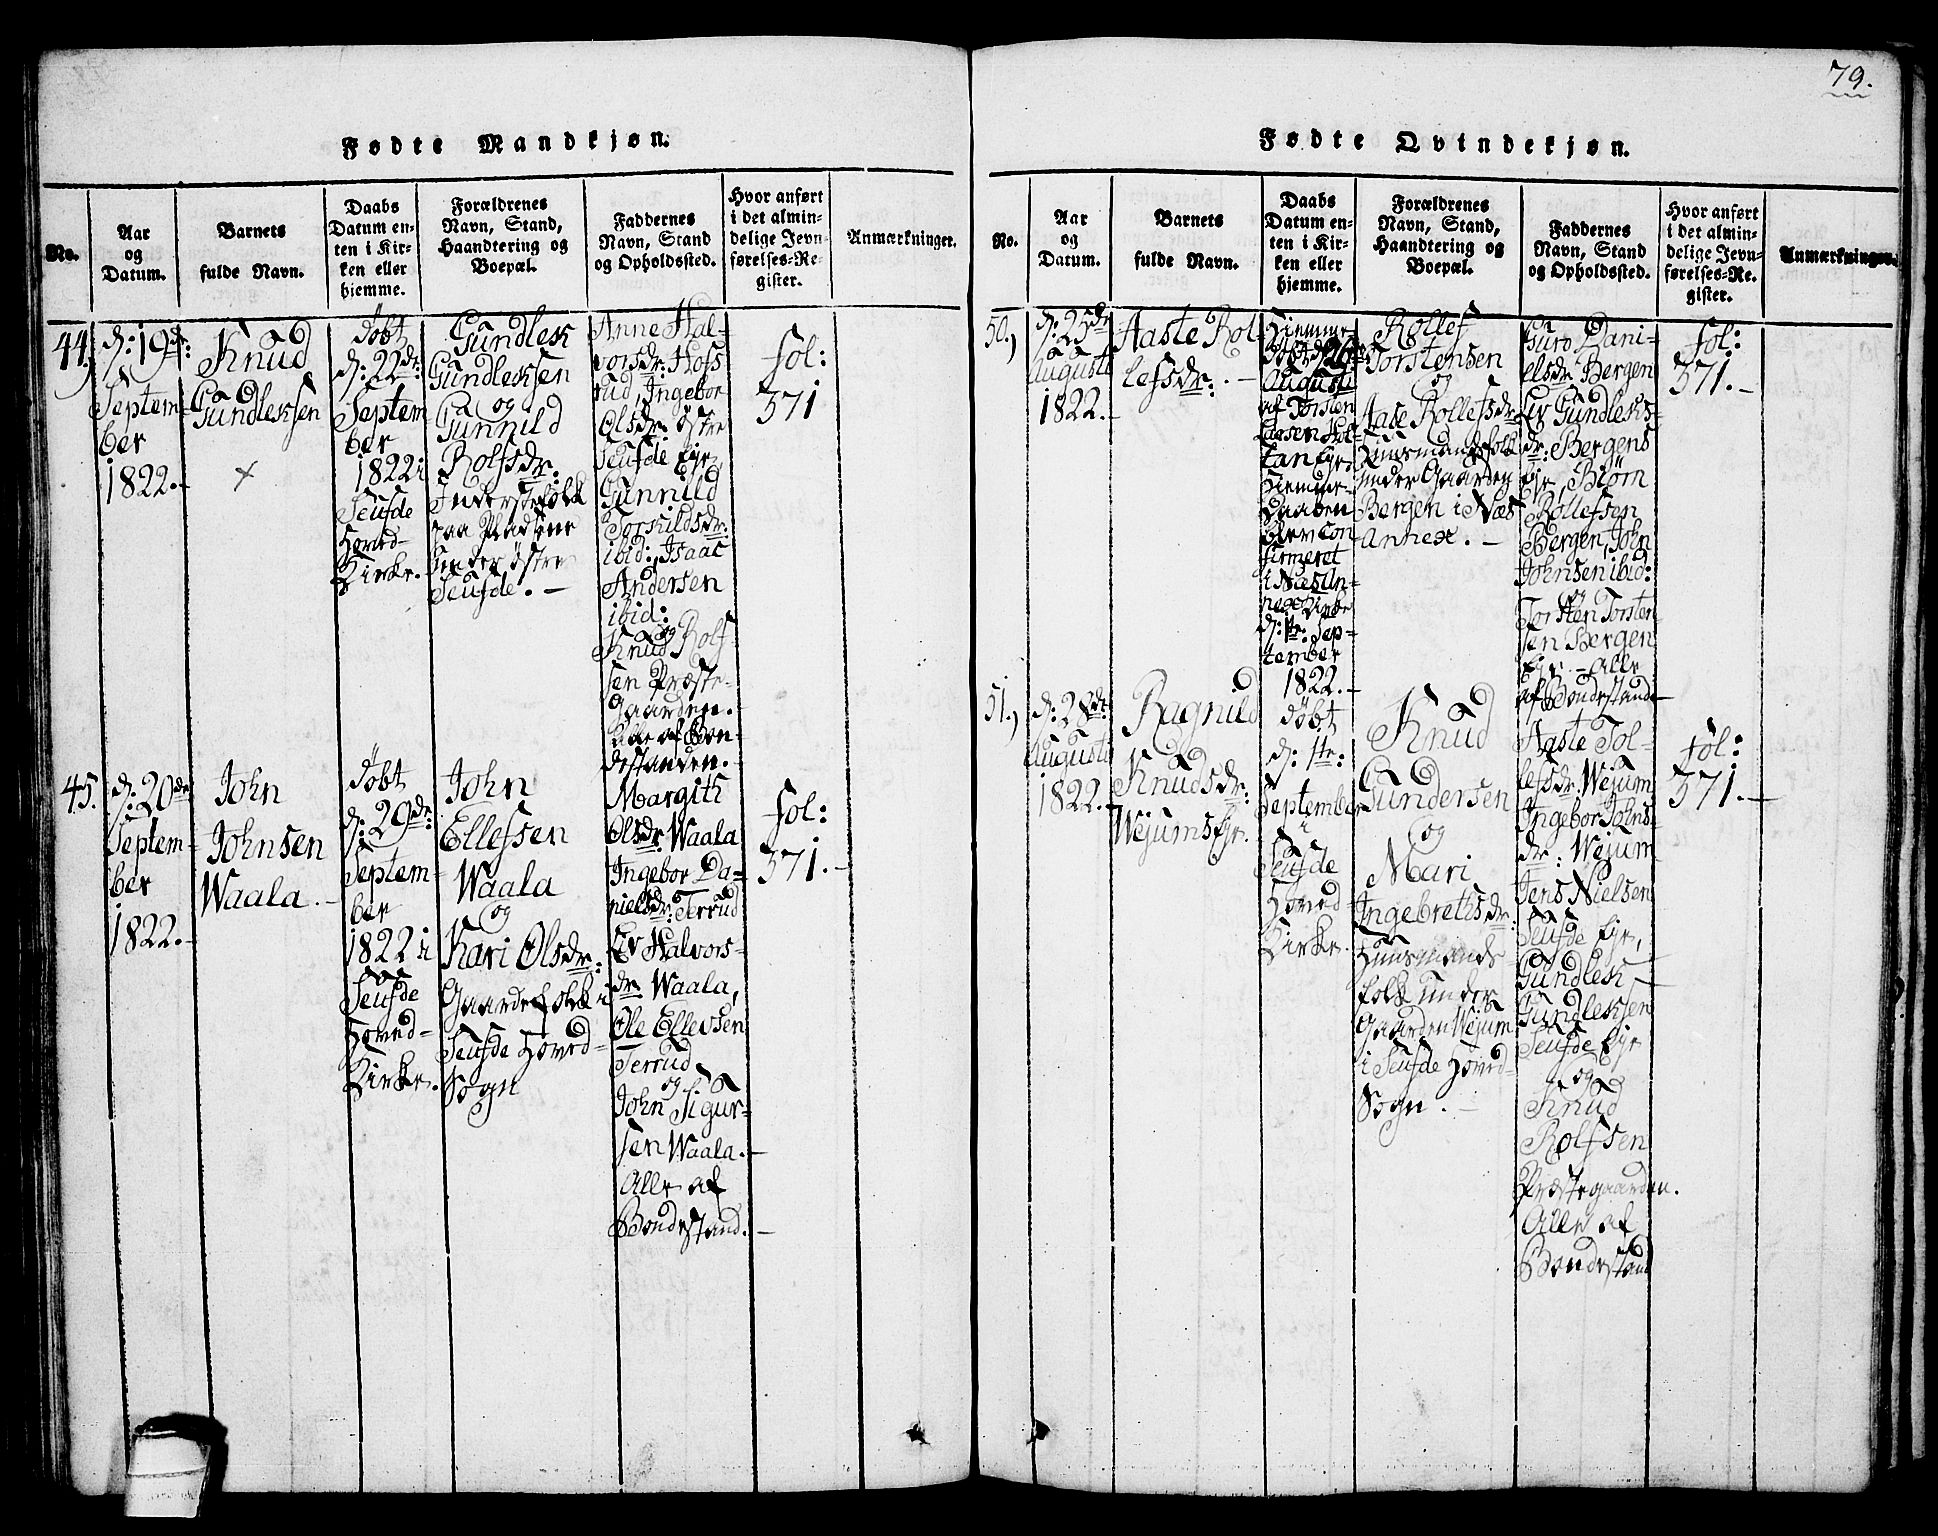 79.
Fødte Mandkjøn.
No.
Aar
og
Datum.
Barnets
fulde Navn.
Daabs
Datum en-
ten i Kir-
ken eller
hjemme.
Forældrenes
Navn, Stand,
Haandtering og
Boepæl.
Faddernes
Navn, Stand
og Opholdssted.
Hvor anført
i det almin-
delige Jevn-
førelses-Re-
gister.
Anmærkninger.
44,
d: 19de:
Septem-
ber
1822.-
Knud
Gundleksen
+
døbt
d: 22de:
Septem
ber
1822 i
Seufde
Hoved-
Kirke.
Gundlek
Gundleksen
og
Gunnild
Rolfsdr:
Inderstefolk
paa Pladsene
under Östre
Seufde. -
Anne Hal-
vorsdr: Hoss
rud, Ingebor
Olsdr: Östre
Seufde Eje,
Gunnild
Torkildsdr:
ibid:, Isaac
Andersen
ibid:
og
Knud Rolf-
sen Præste-
Gaarden.
Alle af Bon-
destanden.-
fol:
371
45.
d: 20de
Septem-
ber
1822.-
John
Johnsen
Waala.-
døbt
d: 29de:
Septem-
ber
1822 i
Seufde
Hoved-
Kirke.
John
Ellefsen
Waala
og
Kari Olsdr:
Gaardefolk i
Seufde Hoved-
Sogn
Margith
Olsdr: Waala
Ingebor Da-
nielsdr: Terrud
Liv Halvors-
dr: Waala,
Ole Ellevsen
Terrud
og
John Sigur-
sen Waala.-
Alle af
Bondestand.-
fol:
371.-
Fødte Qvindekjøn.
No.
Aar
og
Datum.
Barnets
fulde Navn.
Daabs
Datum en-
ten i Kir-
ken eller
hjemme.
Forældrenes
Navn, Stand,
Haandtering og
Boepæl.
Faddernes
Navn, Stand
og Opholdssted.
Hvor anført
i det almin-
delige Jevn-
førelses-Re-
gister.
Anmærkninger.
50,
d: 25de
Augusti
1822.-
Aaste Rol-
lefsdr: -
Hjemme-
døbt d 26de
Augusti
af Torsten
Larsen Hol-
tan Eje,
Hjemme-
Daaben
blev con
firmeret
i Næs An-
nex Kirke
d: 1te: Sep-
tember
1822.-
Rollef
Torstensen
og
Aase Rollefsdr:
Huusmandsfolk
under Gaarden
Bergen i Næs
Annex. -
Guro Dani-
elsdr: Bergen
Liv Gundleks-
dr: Bergens
Eje, Biöm
Rollefsen
Bergen, John
Johnsen ibid:
og
Torsten Torsten
sen Bergen
Eje - Alle
af Bondestande
fol:
371.-
51.,
d: 28de
Augusti
1822.-
Ragnild
Knudsdr:
Wejums Eje.
døbt
d: 1te:
September
i
Seufde
Hoved-
Kirke.
Knud
Gundersen
og
Mari
Ingebrethsdr:
Huusmands-
folk under
Gaarden Wejum
i Seufde Hoved-
Sogn. -
Aaste Tol-
lefsdr: Wejum
Ingebor Johns-
dr: Wejum
Jens Nielsen
Seufde Eje,
Gundlek
Gundleksen
Seufde Eje
og
Knud
Rolfsen
Præstegaarden.
Alle af
Bondestand
fol:
371.-